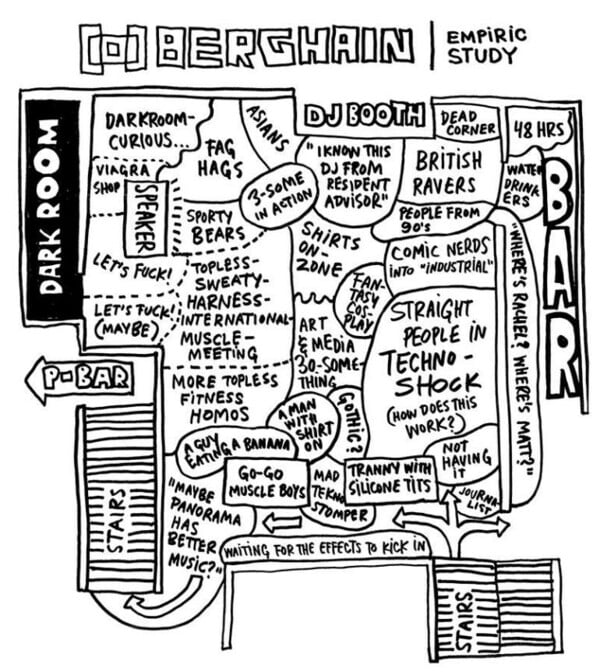 [O] BERGHAIN
EMPIRIC
STUDY
DARK ROOM
DARKROOM-
CURIOUS...
VIAGRA
SHOP
SPEAKER
FAG
HAGS
ASIANS
DJ BOOTH
"I KNOW THIS
DJ FROM
RESIDENT
ADVISOR"
DEAD
CORNER
48 HRS
BRITISH
RAVERS
WATER
DRINK
ERS
BAR
3-SOME
IN ACTION
SPORTY
BEARS
SHIRTS
ON-
ZONE
PEOPLE FROM
90'S
COMIC NERDS
INTO "INDUSTRIAL"
"WHERE'S RACHEL? WHERE'S MATT?"
LET'S FUCK!
LET'S FUCK!
(MAYBE)
TOPLESS-
SWEATY-
HARNESS-
INTERNATIONAL-
MUSCLE-
MEETING
FAN-
TASY
COS-
PLAY
ART
& MEDIA
30-SOME-
THING
STRAIGHT
PEOPLE IN
TECHNO-
SHOCK
(HOW DOES THIS
WORK?)
P-BAR
MORE TOPLESS
FITNESS
HOMOS
A MAN
WITH
SHIRT
ON
GOTHIC?
A GUY
EATING A BANANA
NOT
HAVING
IT
GO-GO
MUSCLE BOYS
MAD
TEKNO
STOMPER
TRANNY WITH
SILICONE TITS
JOURNA-
LIST
STAIRS
"MAYBE
PANORAMA
HAS
BETTER
MUSIC?"
WAITING FOR THE EFFECTS TO KICK IN
STAIRS